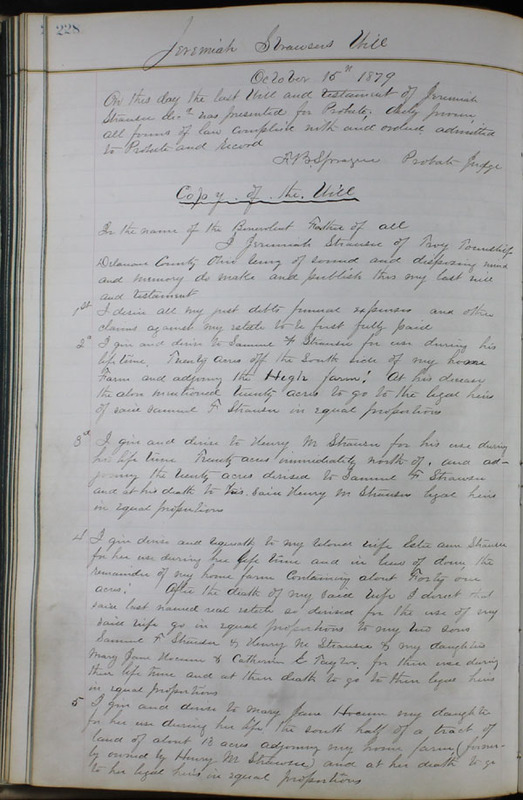 228
Jeremiah Strawsers Will
October 15th 1879
On this day the last Will and testament of Jeremiah
Strawser Decd was presented for Probate, duly proven
all forms of law complied with and ordered admitted
to Probate and record
F. B. Sprague Probate Judge
Copy of the Will
In the name of the Benevolent Father of all
I Jeremiah Strawser of Troy Township
Delaware County Ohio being of sound and disposing mind
and memory do make and publish this my last will
and testament
1st I desire all my just debts funeral expenses and other
claims against my estate to be first fully paid
2d I give and devise to Samuel F Strawser for use during his
life time, Twenty acres off the South side of my home
Farm and adjoining the farm! At his decease
the above mentioned twenty acres to go to the legal heirs
of said Samuel F. Strawser in equal proportions
3d I give and devise to Henry M Strawser for his use during
his life time Twenty acres immediately north of, and ad-
joining the twenty acres devised to Samuel F Strawser
and at his death to said Henry M Strawsers legal heirs
in equal proportions
4 I give devise and bequeath to my beloved wife Ann Strawser
for her use during her life time and in lieu of dower the
remainder of my home farm Containing about Forty one
acres. After the death of my said wife I direct that
said last named real estate so devised for the use of my
said wife go in equal proportions to my two sons
Samuel F Strawser & Henry M Strawser & my daughters
Mary Jane & Catherine E Taylor, for their use during
their life time and at their death to go to their legal heirs
in equal proportions
5 I give and devise to Mary Jane my daughter
for her use during her life the south half of a tract of
land of about 18 acres adjoining my home farm (former-
ly owned by Henry M Strawser) and at her death to go
to her legal heirs in equal proportions